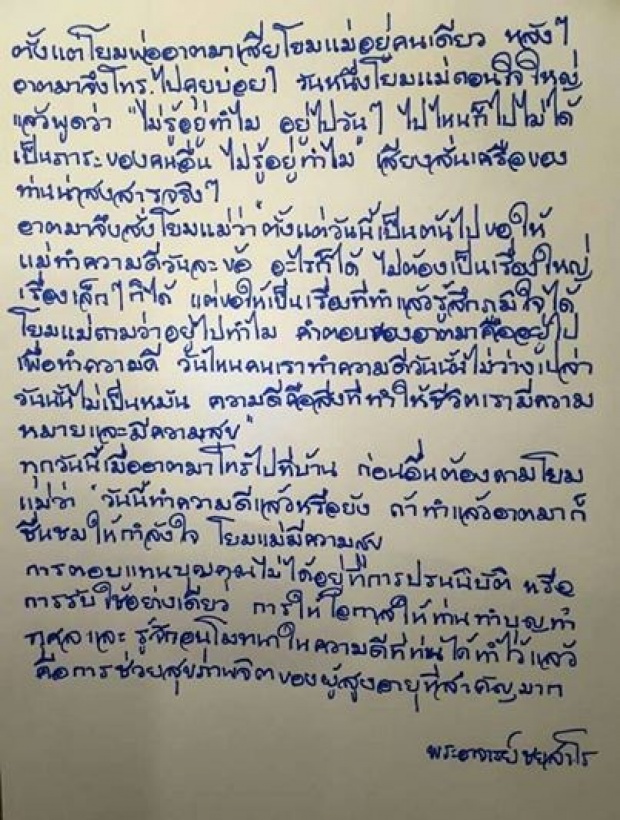 ตั้งแต่โยมพ่ออาตมาเสียโยมแม่อยู่คนเดียว หลังๆ
อาตมาจึงโทร.ไปคุยบ่อยๆ วันหนึ่งโยมแม่ถอนใจใหญ่
แล้วพูดว่า "ไม่รู้อยู่ทำไม อยู่ไปวันๆ ไปไหนก็ไปไม่ได้
เป็นภาระของคนอื่น ไม่รู้อยู่ทำไม" เสียงสั่นเครือของ
ท่านน่าสงสารจริงๆ
อาตมาจึงสั่งโยมแม่ว่า "ตั้งแต่วันนี้เป็นต้นไป ขอให้
แม่ทำความดีวันละข้อ อะไรก็ได้ ไม่ต้องเป็นเรื่องใหญ่
เรื่องเล็กๆ ก็ได้ แต่ขอให้เป็นเรื่องที่ทำแล้วรู้สึกภูมิใจได้
โยมแม่ถามว่าอยู่ไปทำไม คำตอบของอาตมาคืออยู่ไป
เพื่อทำความดี วันไหนคนเราทำความดีวันนั้นไม่ว่างเปล่า
วันนั้นไม่เป็นหมัน ความดีคือสิ่งที่ทำให้ชีวิตเรามีความ
หมายและมีความสุข"
ทุกวันนี้เมื่ออาตมาโทรไปที่บ้าน ก่อนอื่นต้องถามโยม
แม่ว่า "วันนี้ทำความดีแล้วหรือยัง ถ้าทำแล้วอาตมาก็
ชื่นชมให้กำลังใจ โยมแม่มีความสุข
การตอบแทนบุญคุณไม่ได้อยู่ที่การปรนนิบัติ หรือ
การรับใช้อย่างเดียว การให้โอกาสให้ท่านทำบุญทำ
กุศล และ รู้สึกอนุโมทนาในความดีที่ท่านได้ทำไว้แล้ว
คือการช่วยสุขภาพจิตของผู้สูงอายุที่สำคัญมาก
พระอาจารย์ชยสาโร